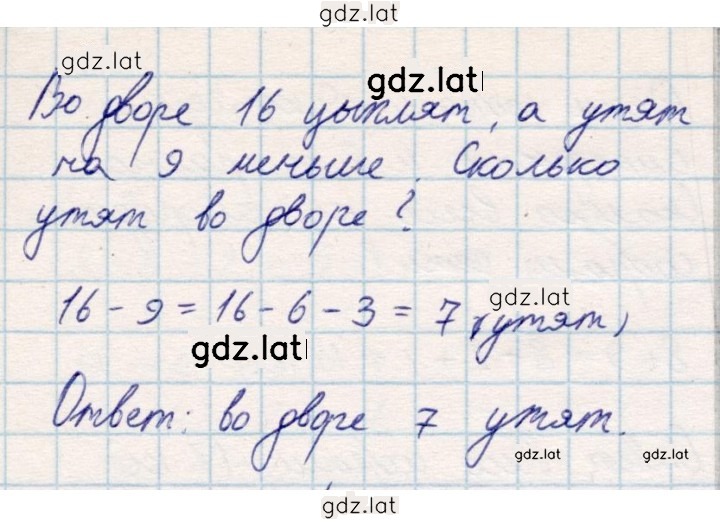 gdz.lat
gdz.lat
gdz.lat
Во дворе 16 цыплят, а утят
на 9 меньше. Сколько
утят во дворе?
16 - 9 = 16 - 6 - 3 = 7 (утят)
gdz.lat
gdz.lat
Ответ: во дворе 7 утят.
gdz.lat gdz.lat
gdz.lat